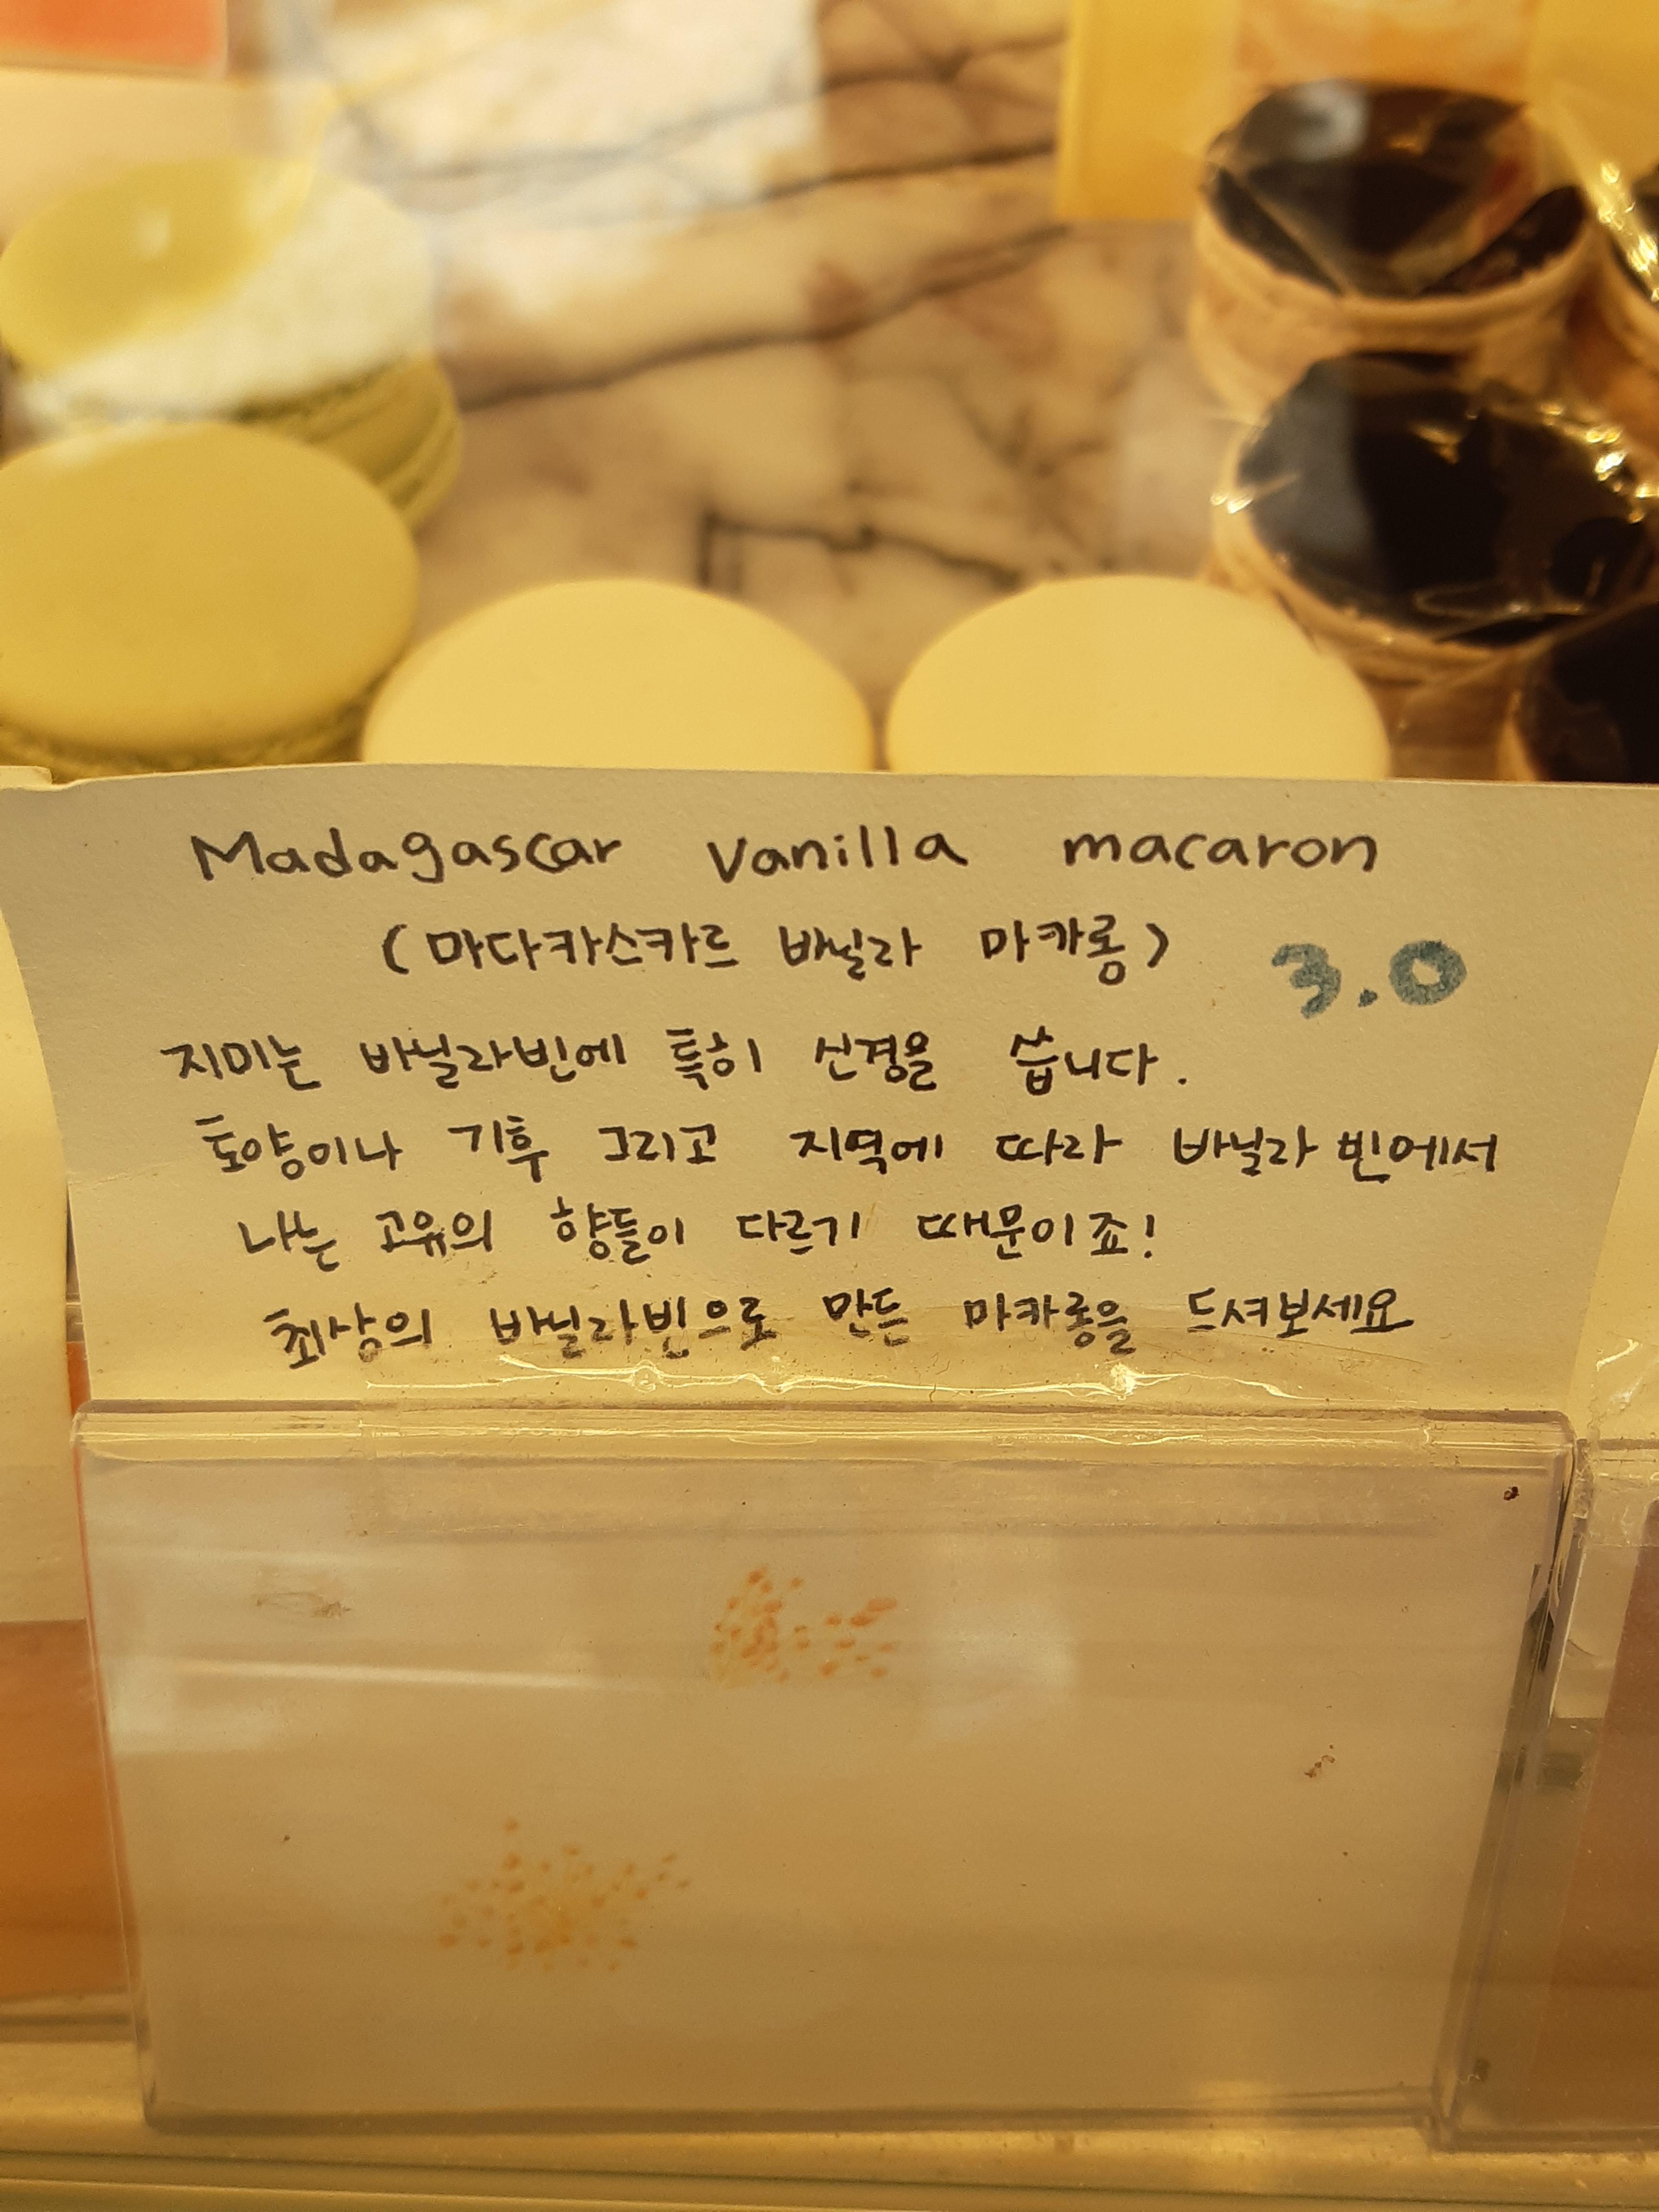 Madagascar vanilla macaron
(마다카스카르 바닐라 마카롱) 3.0
지미는 바닐라빈에 특히 신경을 씁니다.
토양이나 기후 그리고 지역에 따라 바닐라 빈에서
나는 고유의 향들이 다르기 때문이죠!
최상의 바닐라빈으로 만든 마카롱을 드셔보세요